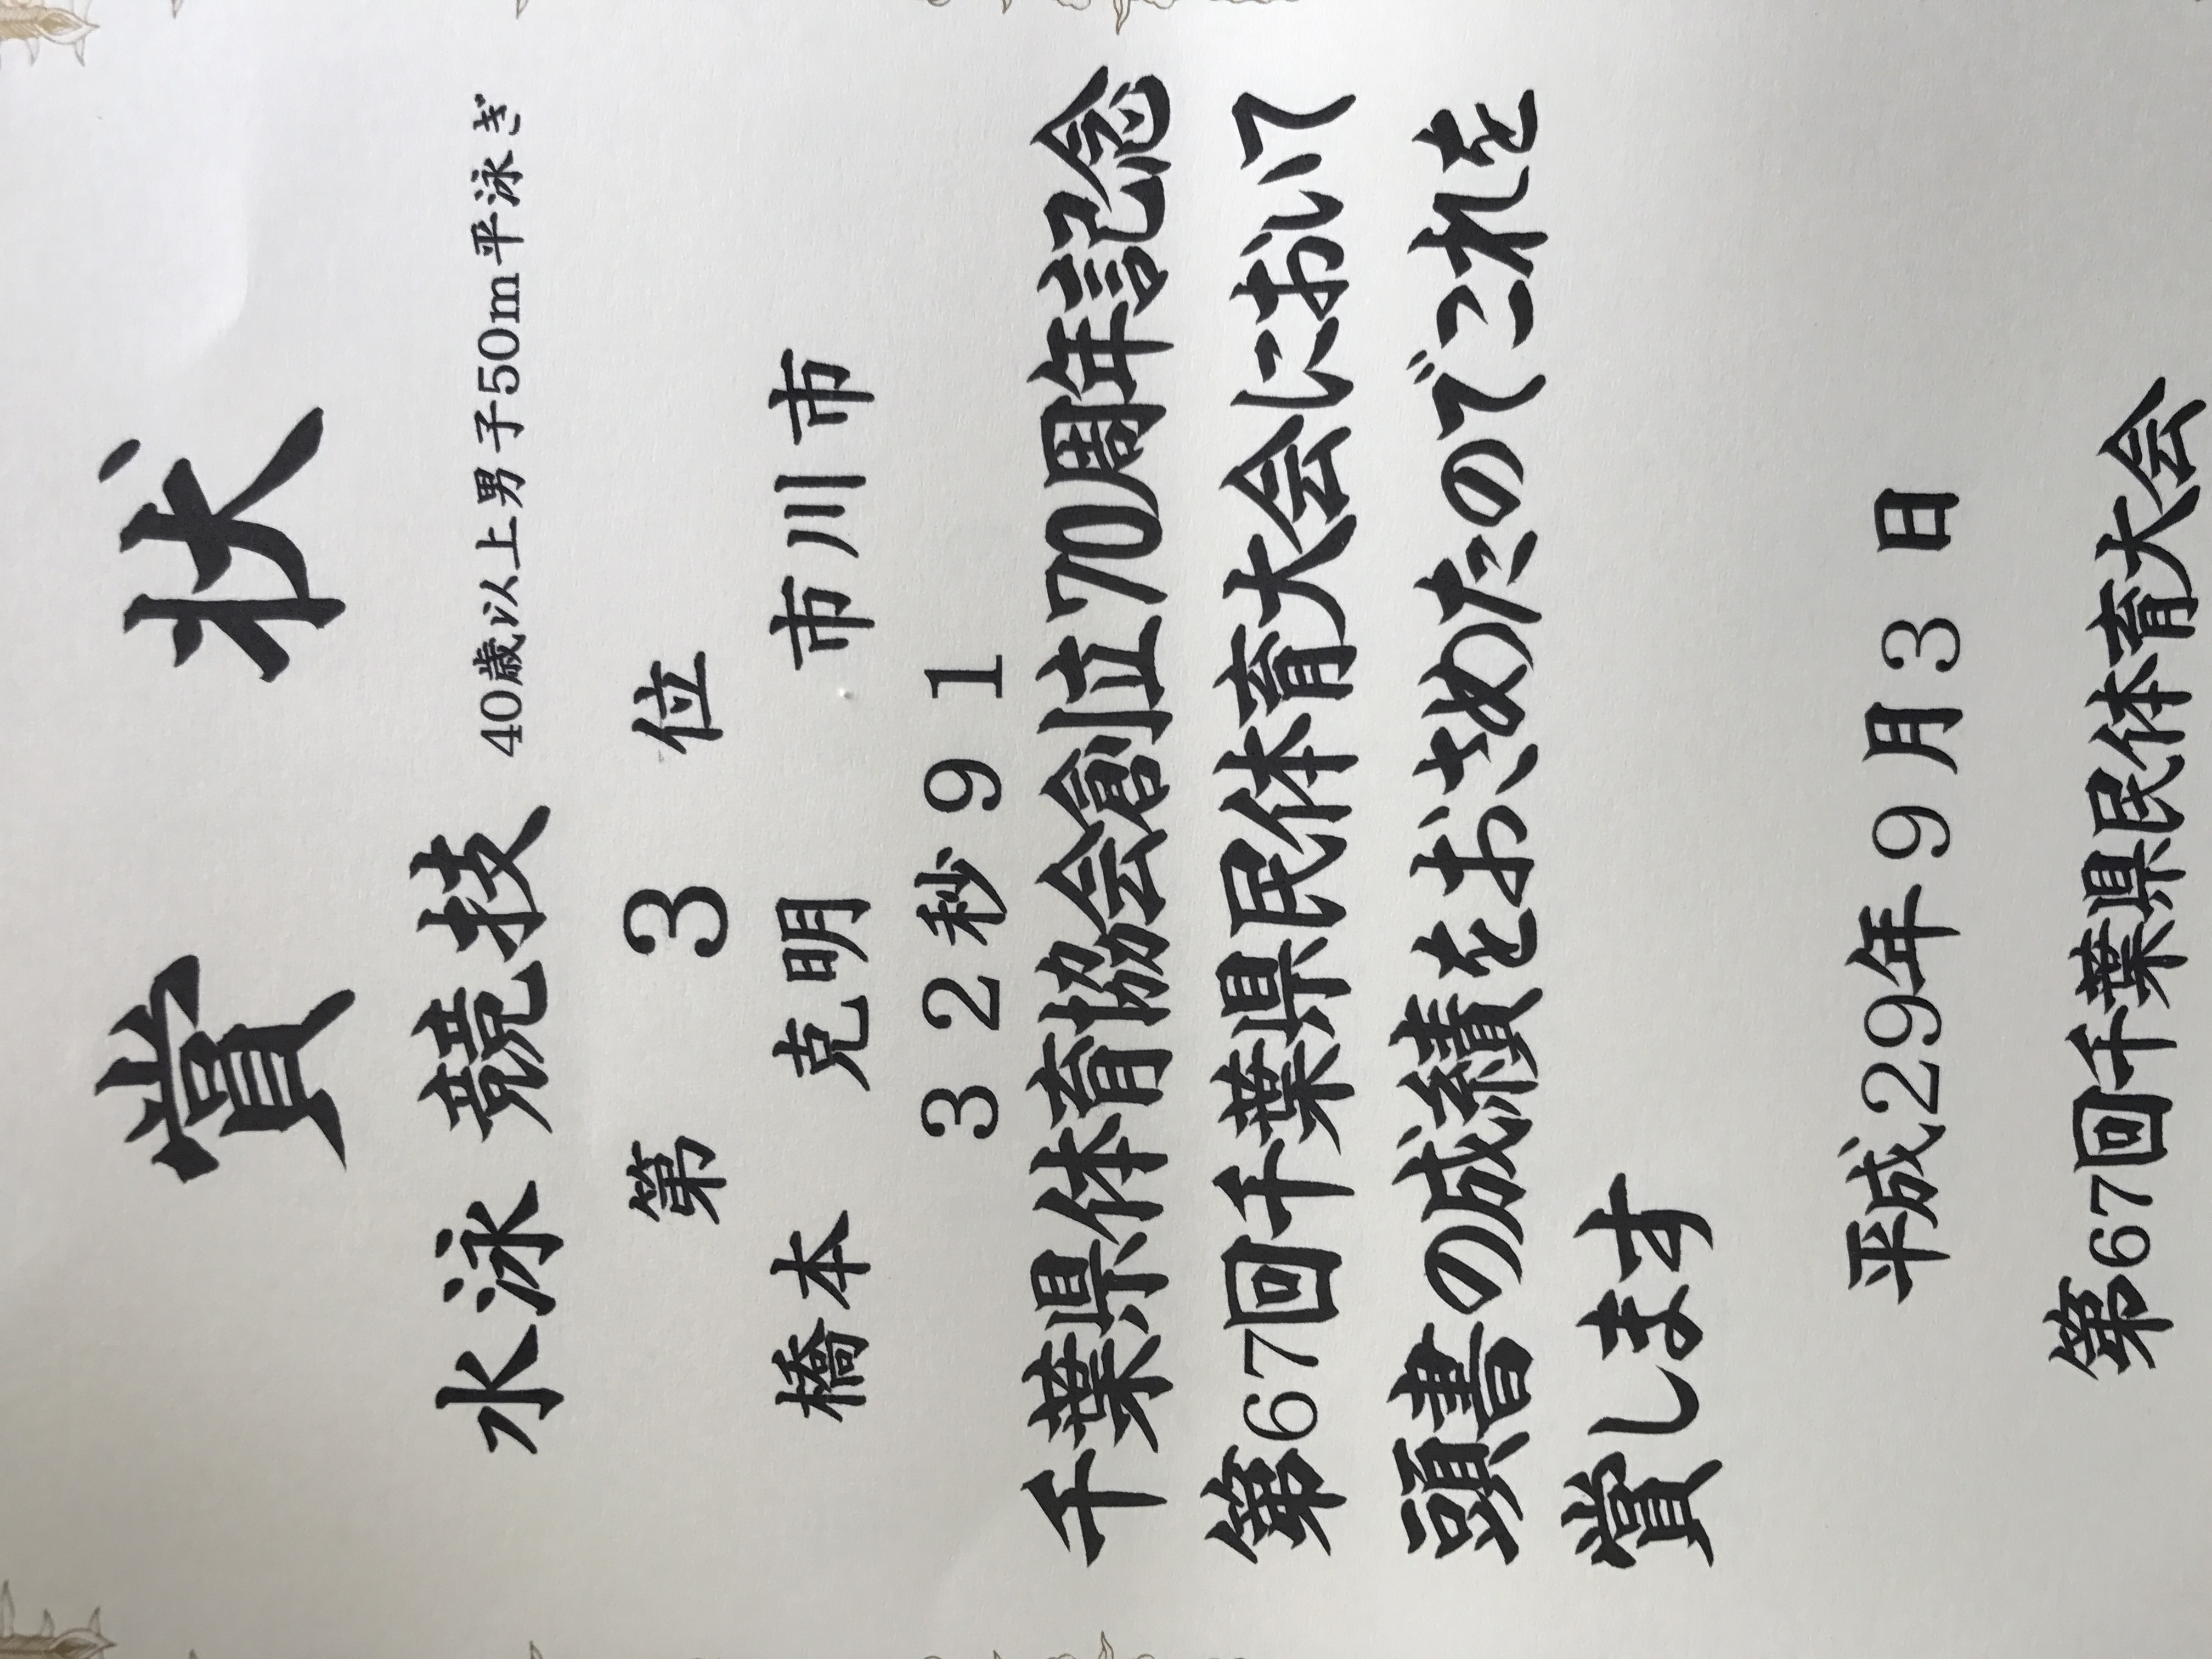 賞 状
水泳 競技 40歳以上男子50m平泳ぎ
第 3 位
橋本 克明 市川市
32秒91
千葉県体育協会創立70周年記念
第67回千葉県民体育大会において
頭書の成績をおさめたのでこれを
賞します
平成29年9月3日
第67回千葉県民体育大会